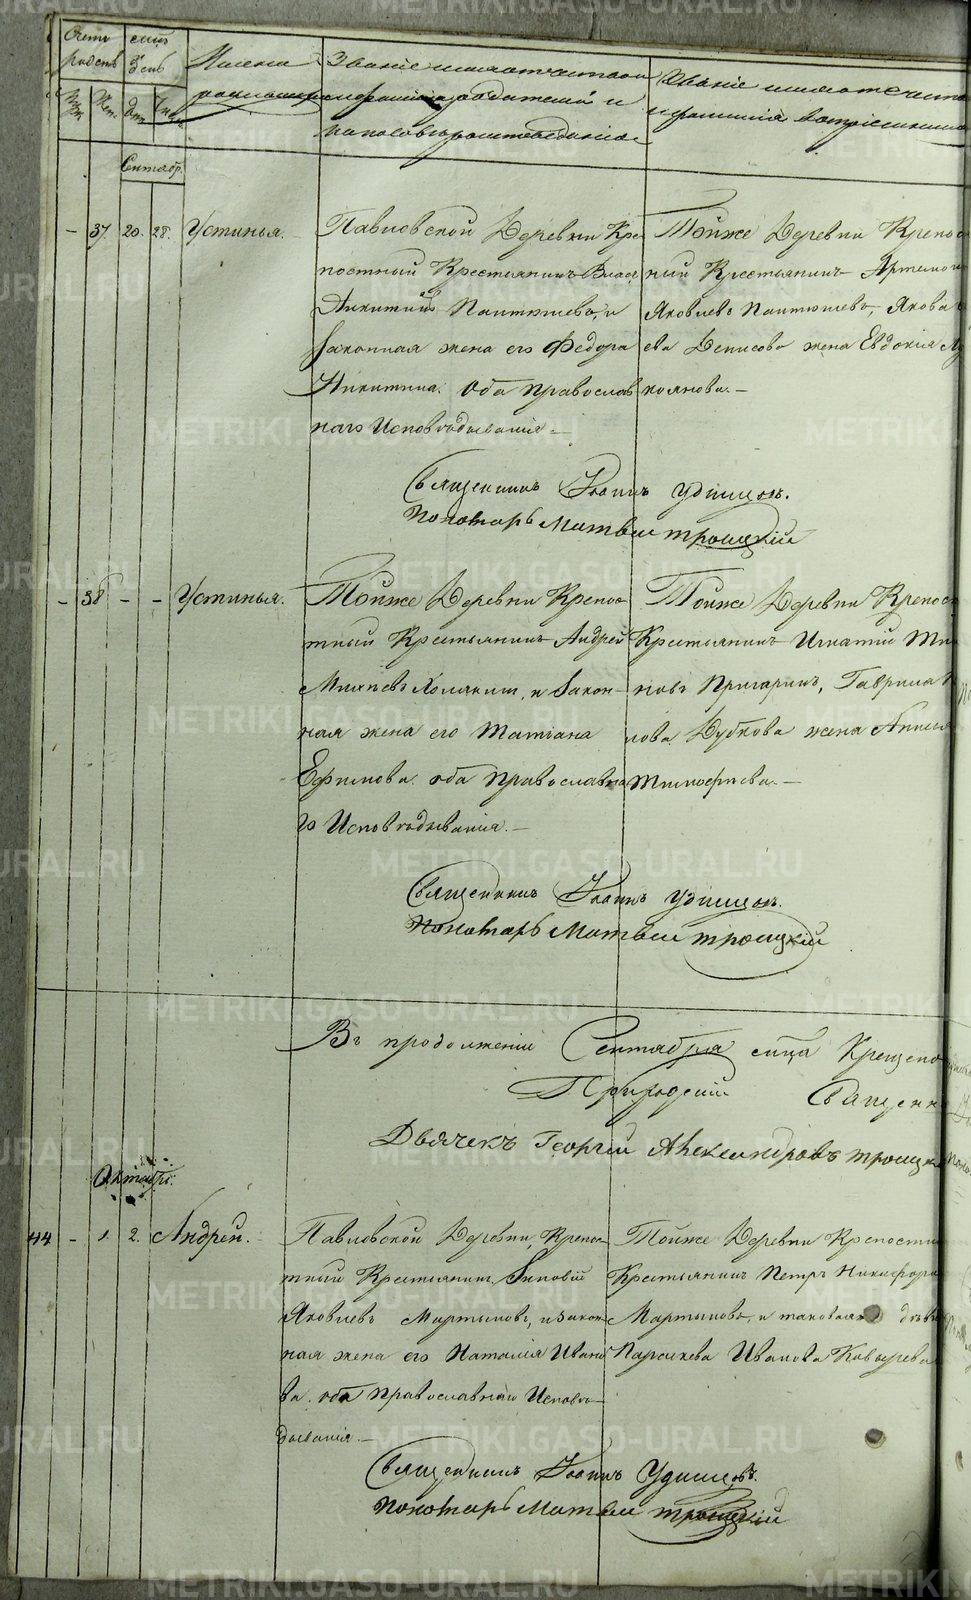 Счетъ
родсъ
мсцъ
и
день
Имена
родившихся
Званіе имя отчество
и фамилія родителей и
Званіе имя отечество
и фамилія
Сентябр.
- 37. 20. 28. Устинья.
Павловской Деревни Кре
постный Крестьянинъ
Никитинъ Пантюшевъ, и
Законная жена его Федора
Никитина. оба Православ
наго Исповѣдыванія.
Тойже Деревни Крепос
ный Крестьянинъ Артемон
Яковлевъ Пантюшевъ, Якова
ева Денисова жена Евдокія
Священникъ Іоаннъ Удинцовъ.
Пономарь Матвей Троицкій
- 38 - - Устинья.
Тойже Деревни Крепос
тный Крестьянинъ Андрей
Холякинъ, и Закон-
ная жена его Татіана
Ефимова. оба Православна
го Исповѣдыванія.
Тойже Деревни Крепост
Крестьянинъ Игнатій
новъ Пригаринъ, Гаврила
лова Дубкова жена
Тимофеева.
Священникъ Іоаннъ Удинцовъ.
Пономарь Матвей Троицкій
Въ продолженіи Сентября мсца Крещено
Священн
Дьячекъ Георгій Александровъ Троицк
Октябрь.
44 - 1. 2. Андрей.
Павловской Деревни, Крепос
тный Крестьянинъ Зиновій
Яковлевъ Мартыновъ, и закон
ная жена его Наталія Ивано
ва. оба Православнаго Исповѣ
дыванія.
Тойже Деревни Крепостн
Крестьянинъ Петръ Никифоро
Мартыновъ, и таковая дѣви
Параскева Иванова
Священникъ Іоаннъ Удинцовъ.
Пономарь Матвей Троицкій
METRIKI.GASO-URAL.RU